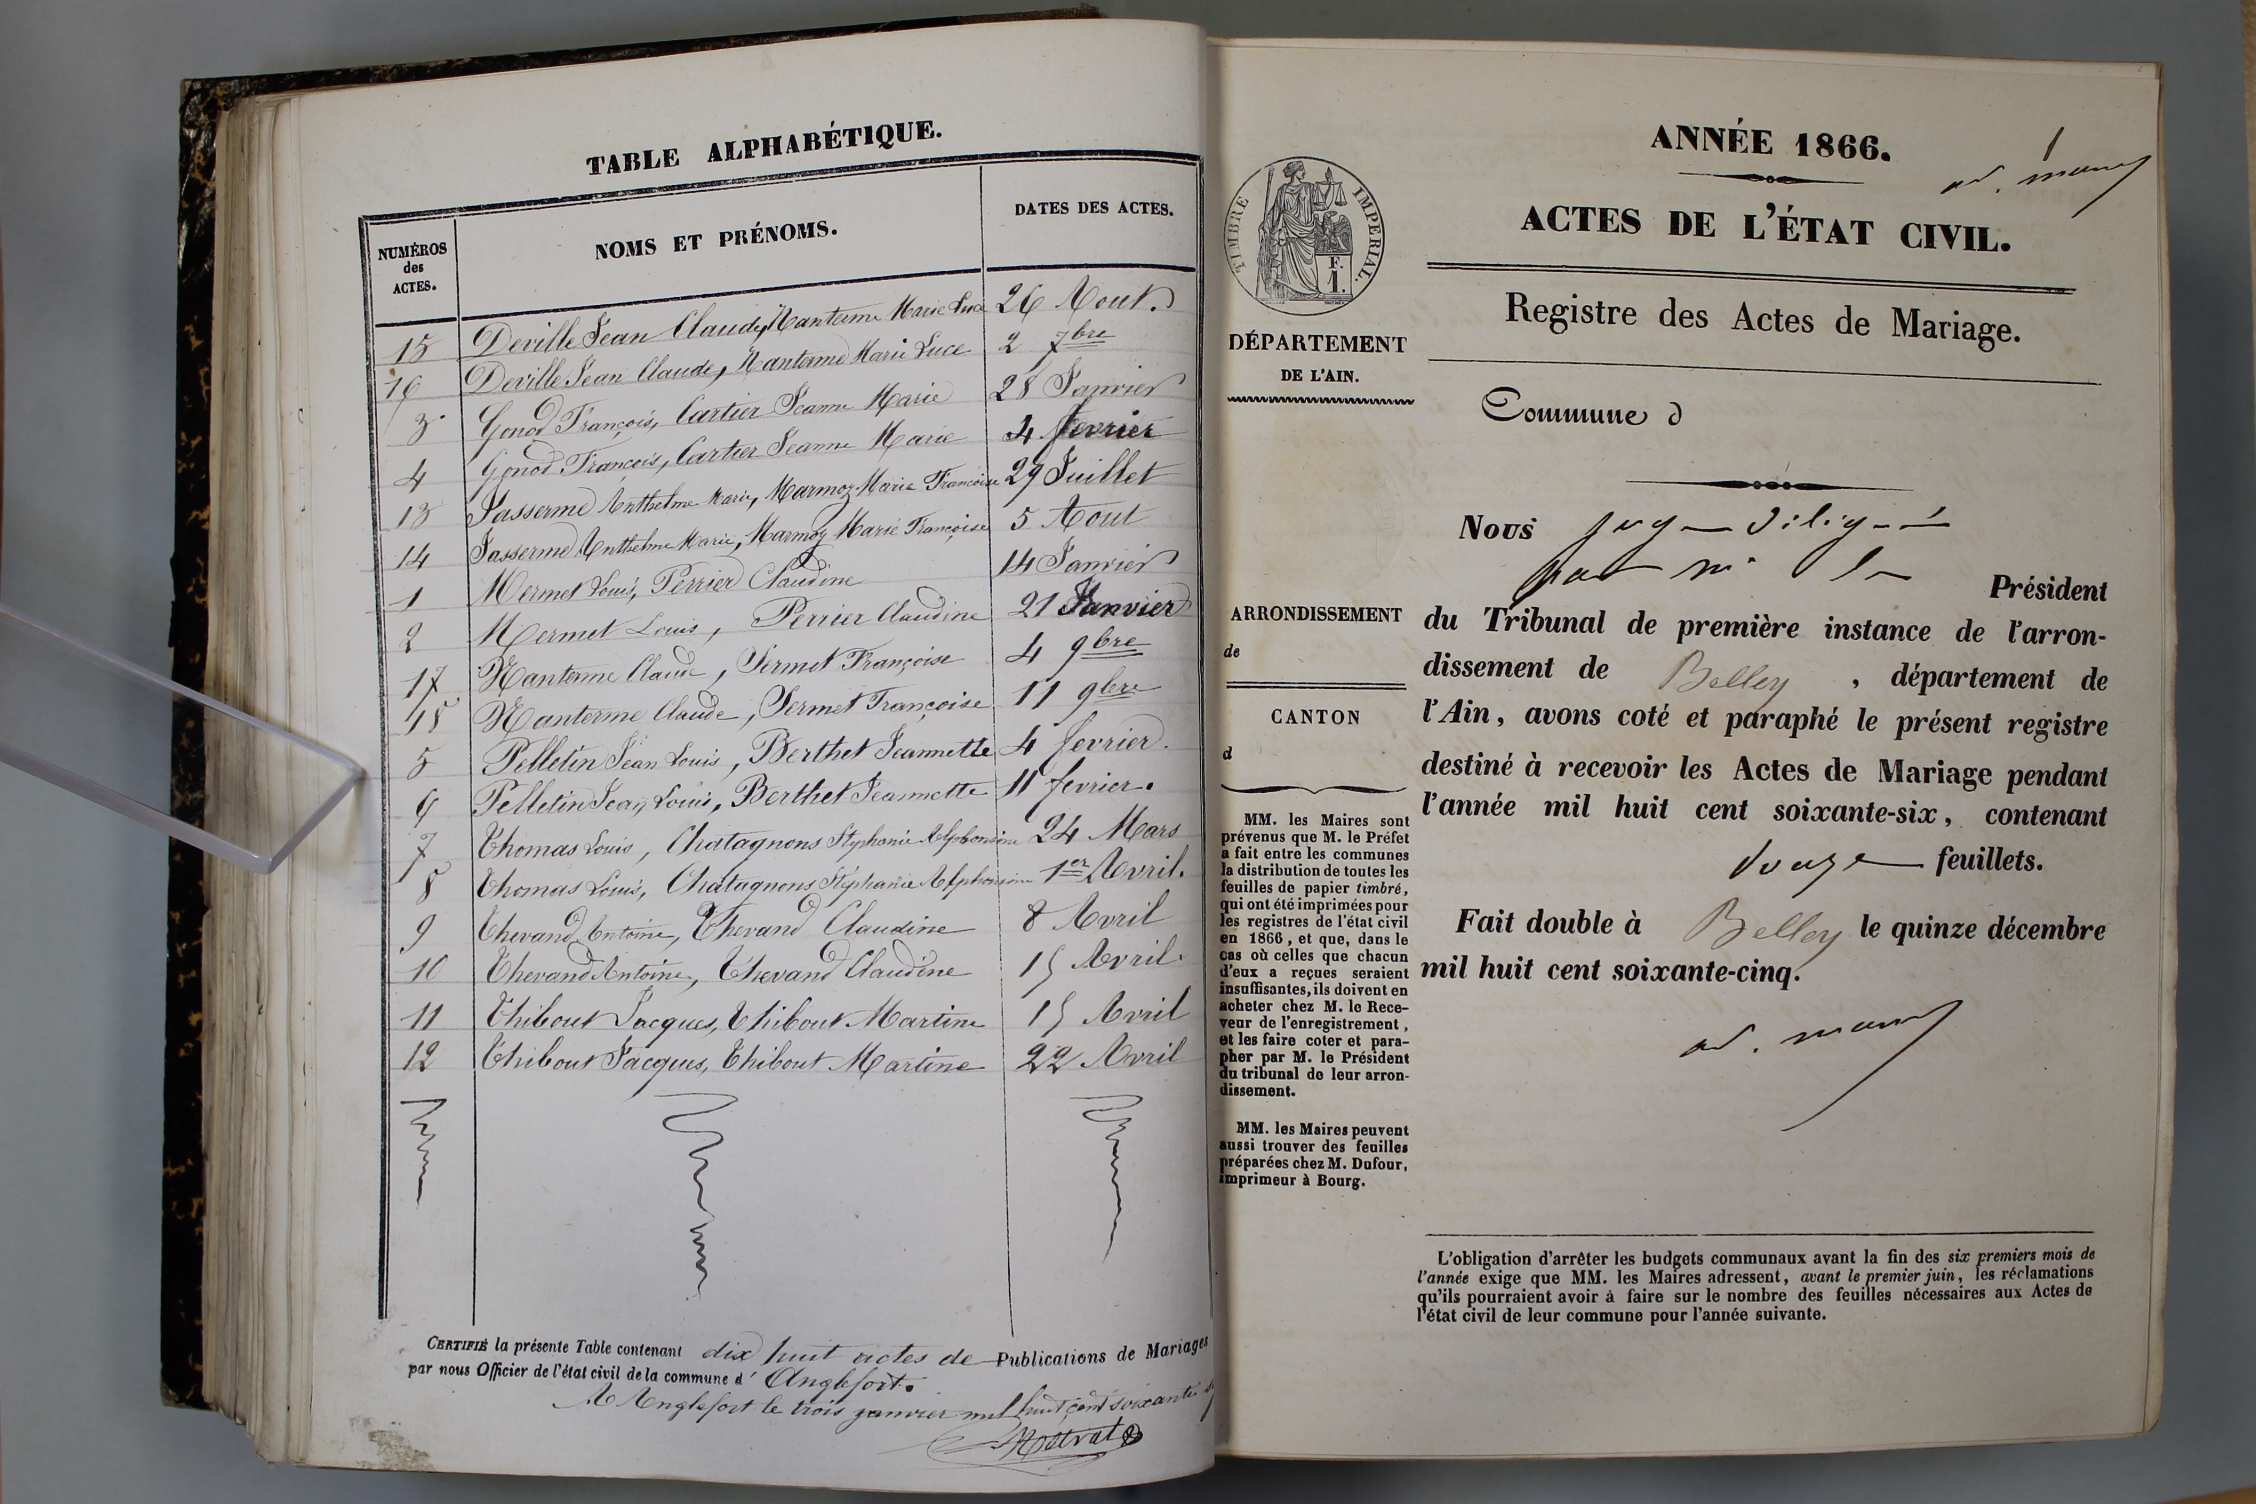 TABLE ALPHABÉTIQUE.
NUMÉROS des ACTES.
NOMS ET PRÉNOMS.
DATES DES ACTES.
15 Deville Jean Claude, Nanterme Marie Luce 26 Aout.
16 Deville Jean Claude, Nanterme Marie Luce 2 7bre
3 Gonod François, Cartier Jeanne Marie 28 Janvier
4 Gonod François, Cartier Jeanne Marie 4 fevrier
13 Jasserme Anthelme Marie, Marmoz Marie Françoise 29 Juillet
14 Jasserme Anthelme Marie, Marmoz Marie Françoise 5 Aout
1 Mermet Louis, Perrier Claudine 14 Janvier
2 Mermet Louis, Perrier Claudine 21 Janvier
17 Nanterme Claude, Sermet Françoise 4 9bre
18 Nanterme Claude, Sermet Françoise 11 9bre
5 Pelletin Jean Louis, Berthet Jeannette 4 fevrier.
6 Pelletin Jean Louis, Berthet Jeannette 11 fevrier.
7 Thomas Louis, Chatagnons Stéphanie Alphonsine 24 Mars
8 Thomas Louis, Chatagnons Stéphanie Alphonsine 1er Avril.
9 Thevand Antoine, Thevand Claudine 8 Avril
10 Thevand Antoine, Thevand Claudine 15 Avril.
11 Thibout Jacques, Thibout Martine 15 Avril
12 Thibout Jacques, Thibout Martine 22 Avril
CERTIFIÉ la présente Table contenant dix huit actes de Publications de Mariages
par nous Officier de l'état civil de la commune d' Anglefort.
A Anglefort le trois janvier mil huit cent soixante
ANNÉE 1866.
ACTES DE L'ÉTAT CIVIL.
Registre des Actes de Mariage.
Commune d
TIMBRE IMPERIAL.
F.
1.
DÉPARTEMENT
DE L'AIN.
ARRONDISSEMENT
de
CANTON
d
MM. les Maires sont
prévenus que M. le Préfet
a fait entre les communes
la distribution de toutes les
feuilles de papier timbré,
qui ont été imprimées pour
les registres de l'état civil
en 1866, et que, dans le
cas où celles que chacun
d'eux a reçues seraient
insuffisantes, ils doivent en
acheter chez M. le Rece-
veur de l'enregistrement,
et les faire coter et para-
pher par M. le Président
du tribunal de leur arron-
dissement.
MM. les Maires peuvent
aussi trouver des feuilles
préparées chez M. Dufour,
imprimeur à Bourg.
Nous
Président
du Tribunal de première instance de l'arron-
dissement de Belley, département de
l'Ain, avons coté et paraphé le présent registre
destiné à recevoir les Actes de Mariage pendant
l'année mil huit cent soixante-six, contenant
douze feuillets.
Fait double à Belley le quinze décembre
mil huit cent soixante-cinq.
L'obligation d'arrêter les budgets communaux avant la fin des six premiers mois de
l'année exige que MM. les Maires adressent, avant le premier juin, les réclamations
qu'ils pourraient avoir à faire sur le nombre des feuilles nécessaires aux Actes de
l'état civil de leur commune pour l'année suivante.